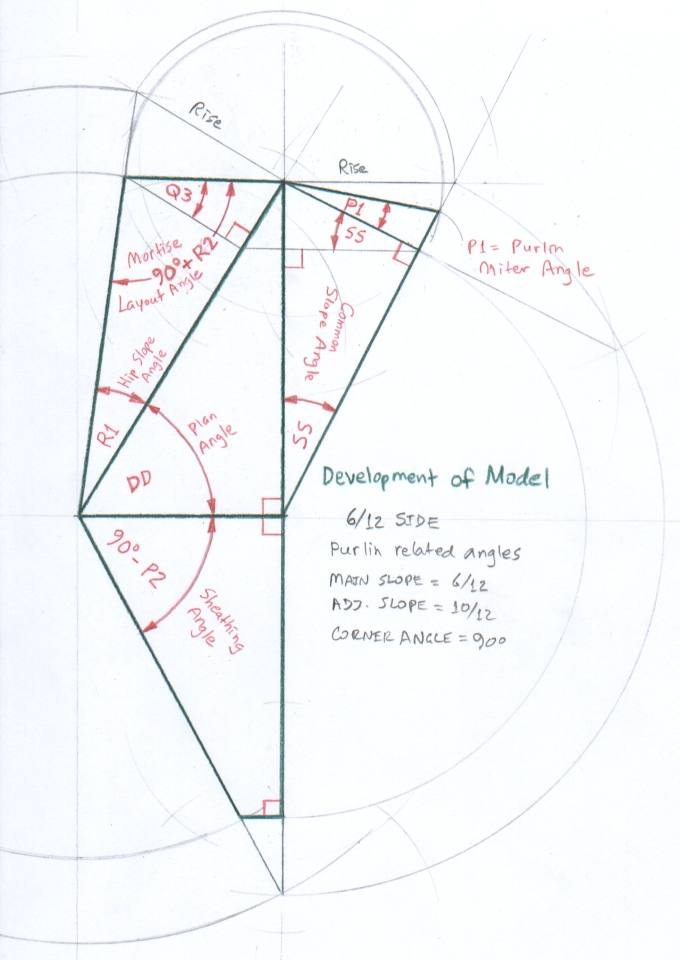 Rise
Rise
Q3
P1
SS
P1 = Purlin
Miter Angle
Mortise
90° + R2
Layout Angle
Common
Slope Angle
Hip Slope
Angle
R1
Plan
Angle
SS
DD
Development of Model
6/12 SIDE
Purlin related angles
MAIN SLOPE = 6/12
ADJ. SLOPE = 10/12
CORNER ANGLE = 900
90° - P2
Sheathing
Angle